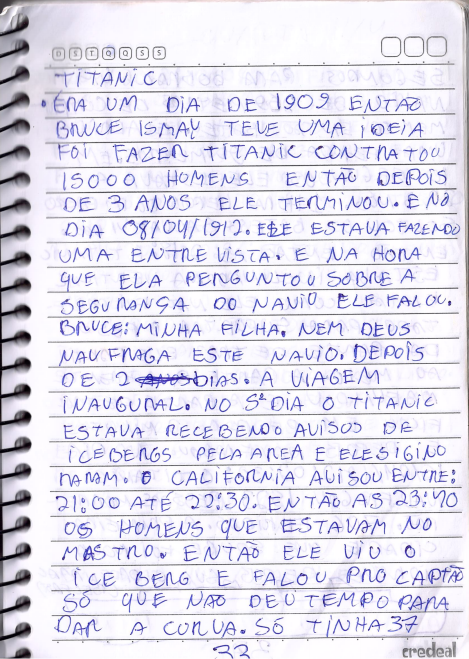 D S T Q Q S S
TITANIC
ERA UM DIA DE 1909 ENTAO
BRUCE ISMAY TEVE UMA IDEIA
FOI FAZER TITANIC CONTRATOU
15000 HOMENS ENTÃO DEPOIS
DE 3 ANOS ELE TERMINOU. E NO
DIA 08/04/1912. ELE ESTAVA FAZENDO
UMA ENTREVISTA. E NA HORA
QUE ELA PERGUNTOU SOBRE A
SEGURANÇA DO NAVIO ELE FALOU.
BRUCE: MINHA FILHA. NEM DEUS
NAUFRAGA ESTE NAVIO. DEPOIS
DE 2 DIAS. A VIAGEM
INAUGURAL. NO 5º DIA O TITANIC
ESTAVA RECEBENDO AVISOS DE
ICEBERGS PELA AREA E ELES IGINO
RARAM. O CALIFORNIA AVISOU ENTRE:
21:00 ATÉ 22:30. ENTÃO AS 23:40
OS HOMENS QUE ESTAVAM NO
MASTRO. ENTÃO ELE VIU O
ICE BERG E FALOU PRO CAPTÃO
SÓ QUE NÃO DEU TEMPO PARA
DAR A CURVA. SÓ TINHA 37
33
credeal